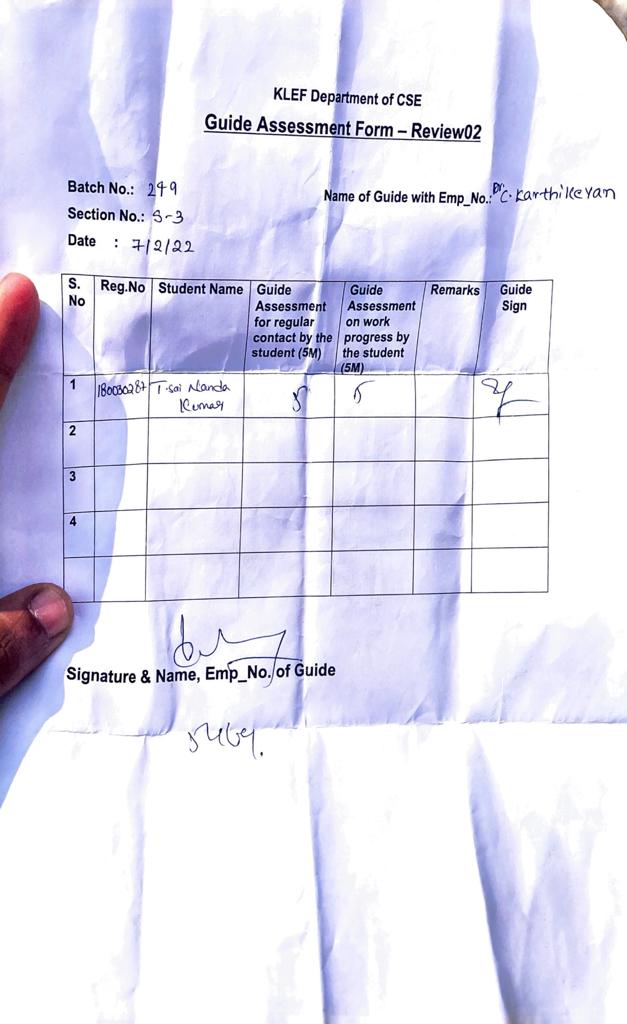 KLEF Department of CSE
Guide Assessment Form – Review02
Batch No.: 249
Name of Guide with Emp_No.: Dr C. Karthikeyan
Section No.: S-3
Date : 7/2/22
S. No Reg.No Student Name Guide Assessment for regular contact by the student (5M) Guide Assessment on work progress by the student (5M) Remarks Guide Sign
1 180030287 T. sai Nanda Kumar 5 5
2
3
4
Signature & Name, Emp_No. of Guide